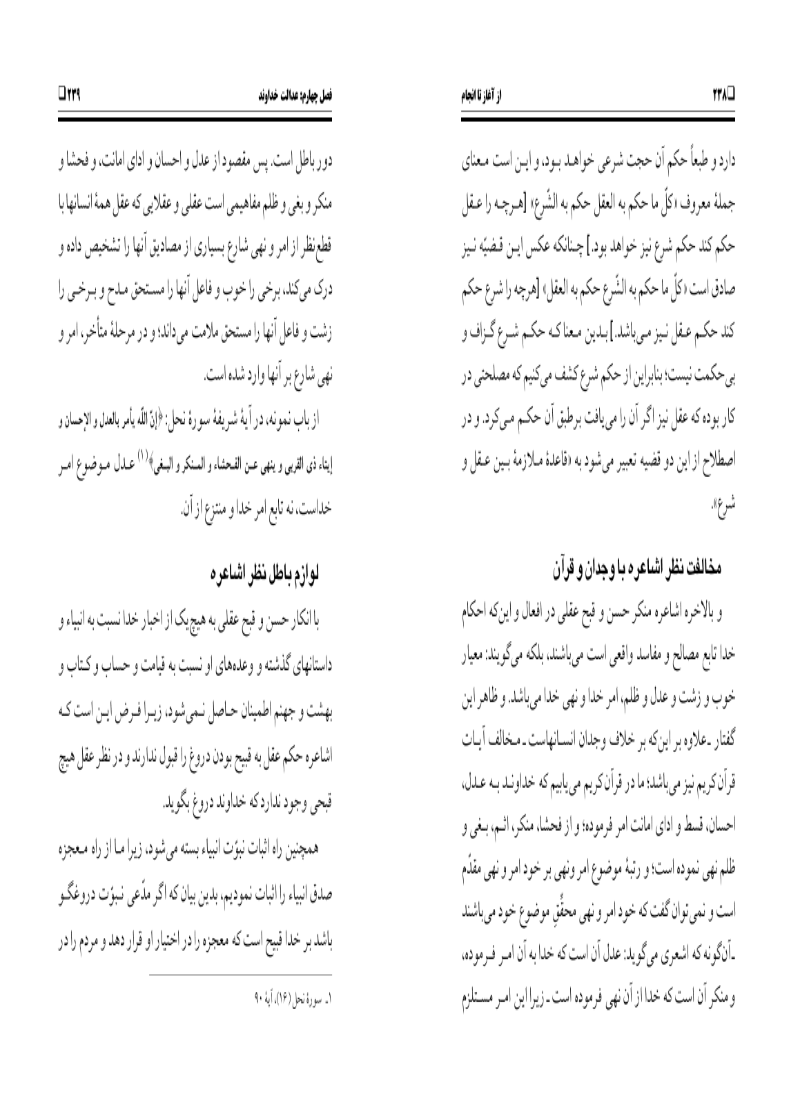 ❏۲۳۸
از آغاز تا انجام
دارد و طبعاً حکم آن حجت شرعی خواهـد بـود، و ایـن است مـعنای
جملهٔ معروف «کلّ ما حکم به العقل حکم به الشّرع» [هـرچـه را عـقل
حکم کند حکم شرع نیز خواهد بود.] چـنانکه عکس ایـن قـضیّه نـیز
صادق است «کلّ ما حکم به الشّرع حکم به العقل» [هرچه را شرع حکم
کند حکـم عـقل نـیز مـی‌باشد.] بـدین مـعنا کـه حکـم شـرع گـزاف و
بی‌حکمت نیست؛ بنابراین از حکم شرع کشف می‌کنیم که مصلحتی در
کار بوده که عقل نیز اگر آن را می‌یافت برطبق آن حکـم مـی‌کرد. و در
اصطلاح از این دو قضیه تعبیر می‌شود به «قاعدهٔ مـلازمهٔ بـین عـقل و
شرع».
مخالفت نظر اشاعره با وجدان و قرآن
و بالاخره اشاعره منکر حسن و قبح عقلی در افعال و این‌که احکام
خدا تابع مصالح و مفاسد واقعی است می‌باشند، بلکه می‌گویند: معیار
خوب و زشت و عدل و ظلم، امر خدا و نهی خدا می‌باشد. و ظاهر این
گفتار ـ علاوه بر این‌که بر خلاف وجدان انسـانهاست ـ مـخالف آیـات
قرآن کریم نیز می‌باشد؛ ما در قرآن کریم می‌یابیم که خداونـد بـه عـدل،
احسان، قسط و ادای امانت امر فرموده؛ و از فحشا، منکر، اثـم، بـغی و
ظلم نهی نموده است؛ و رتبهٔ موضوع امر ونهی بر خود امر و نهی مقدّم
است و نمی‌توان گفت که خود امر و نهی محقِّقِ موضوع خود می‌باشند
ـ آن‌گونه که اشعری می‌گوید: عدل آن است که خدا به آن امـر فـرموده،
و منکر آن است که خدا از آن نهی فرموده است ـ زیرا این امـر مسـتلزم
فصل چهارم: عدالت خداوند
۲۳۹❏
دور باطل است. پس مقصود از عدل و احسان و ادای امانت، و فحشا و
منکر و بغی و ظلم مفاهیمی است عقلی و عقلایی که عقل همهٔ انسانها با
قطع‌نظر از امر و نهی شارع بسیاری از مصادیق آنها را تشخیص داده و
درک می‌کند، برخی را خوب و فاعل آنها را مسـتحق مـدح و بـرخـی را
زشت و فاعل آنها را مستحق ملامت می‌داند؛ و در مرحلهٔ متأخر، امر و
نهی شارع بر آنها وارد شده است.
از باب نمونه، در آیهٔ شریفهٔ سورهٔ نحل: ﴿إنّ اللّه یأمر بالعدل و الإحسان و
إیتاء ذی القربی و ینهی عـن الفـحشاء و المـنکر و البـغی﴾(۱) عـدل مـوضوع امـر
خداست، نه تابع امر خدا و منتزع از آن.
لوازم باطل نظر اشاعره
با انکار حسن و قبح عقلی به هیچ‌یک از اخبار خدا نسبت به انبیاء و
داستانهای گذشته و وعده‌های او نسبت به قیامت و حساب و کـتاب و
بهشت و جهنم اطمینان حـاصل نـمی‌شود، زیـرا فـرض ایـن است کـه
اشاعره حکم عقل به قبیح بودن دروغ را قبول ندارند و در نظر عقل هیچ
قبحی وجود ندارد که خداوند دروغ بگوید.
همچنین راه اثبات نبوّت انبیاء بسته می‌شود، زیرا مـا از راه مـعجزه
صدق انبیاء را اثبات نمودیم، بدین بیان که اگر مدّعی نـبوّت دروغگـو
باشد بر خدا قبیح است که معجزه را در اختیار او قرار دهد و مردم را در
۱ـ سورهٔ نحل (۱۶)، آیهٔ ۹۰